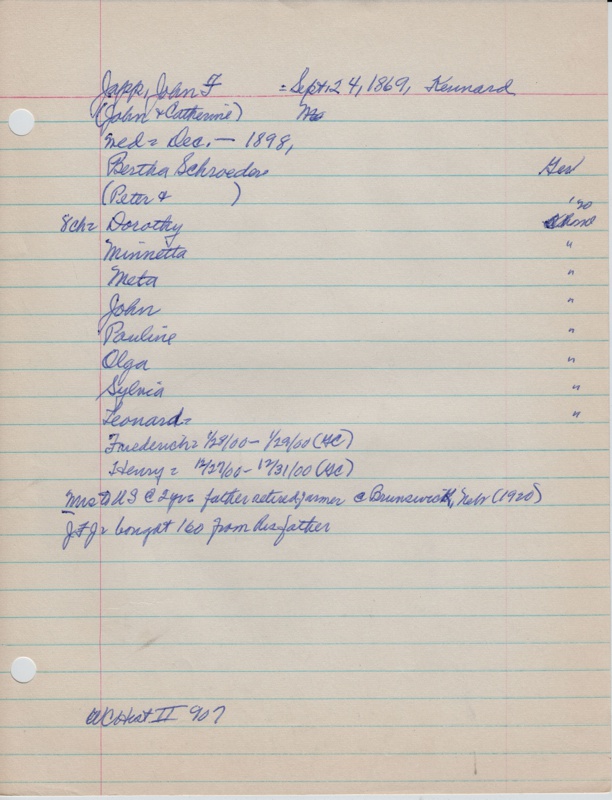 Japp, John F = Sept. 24, 1869, Kennard
(John & Catherine) Mo
Wed = Dec. — 1898,
Bertha Schroeder Ger
(Peter & )
'20
8ch = Dorothy Home
Minnetta "
Meta "
John "
Pauline "
Olga "
Sylvia "
Leonard = "
Friederich = 1/28/00 – 1/29/00 (GC)
Henry = 12/27/00 – 12/31/00 (GC)
Mrs to US @ 2 yrs father retired farmer @ Brunswick, Nebr (1920)
JFJ = bought 160 from his father
WCHist II 907